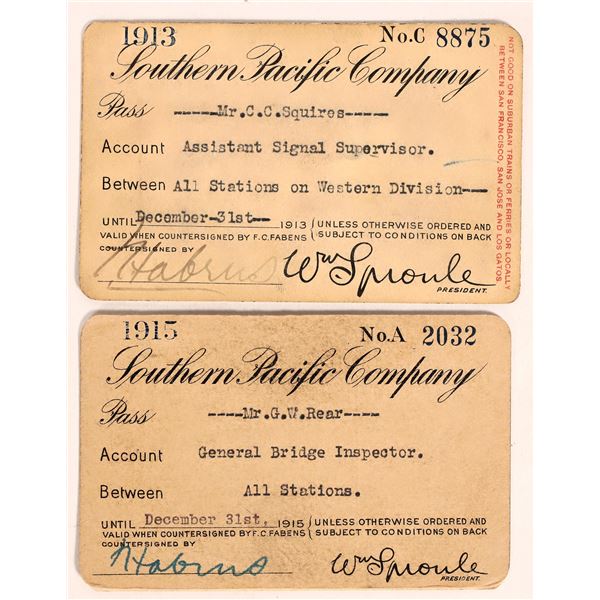 1913 No.C 8875
Southern Pacific Company
Pass -----Mr.C.C.Squires-----
Account Assistant Signal Supervisor.
Between All Stations on Western Division---
UNTIL December-31st-- 1913 { UNLESS OTHERWISE ORDERED AND
VALID WHEN COUNTERSIGNED BY F.C.FABENS { SUBJECT TO CONDITIONS ON BACK
COUNTERSIGNED BY
Wm Sproule
PRESIDENT.
NOT GOOD ON SUBURBAN TRAINS OR FERRIES OR LOCALLY
BETWEEN SAN FRANCISCO, SAN JOSE AND LOS GATOS
1915 No.A 2032
Southern Pacific Company
Pass ----Mr.G.W.Rear----
Account General Bridge Inspector.
Between All Stations.
UNTIL December 31st, 1915 { UNLESS OTHERWISE ORDERED AND
VALID WHEN COUNTERSIGNED BY F.C.FABENS { SUBJECT TO CONDITIONS ON BACK
COUNTERSIGNED BY
Wm Sproule
PRESIDENT.